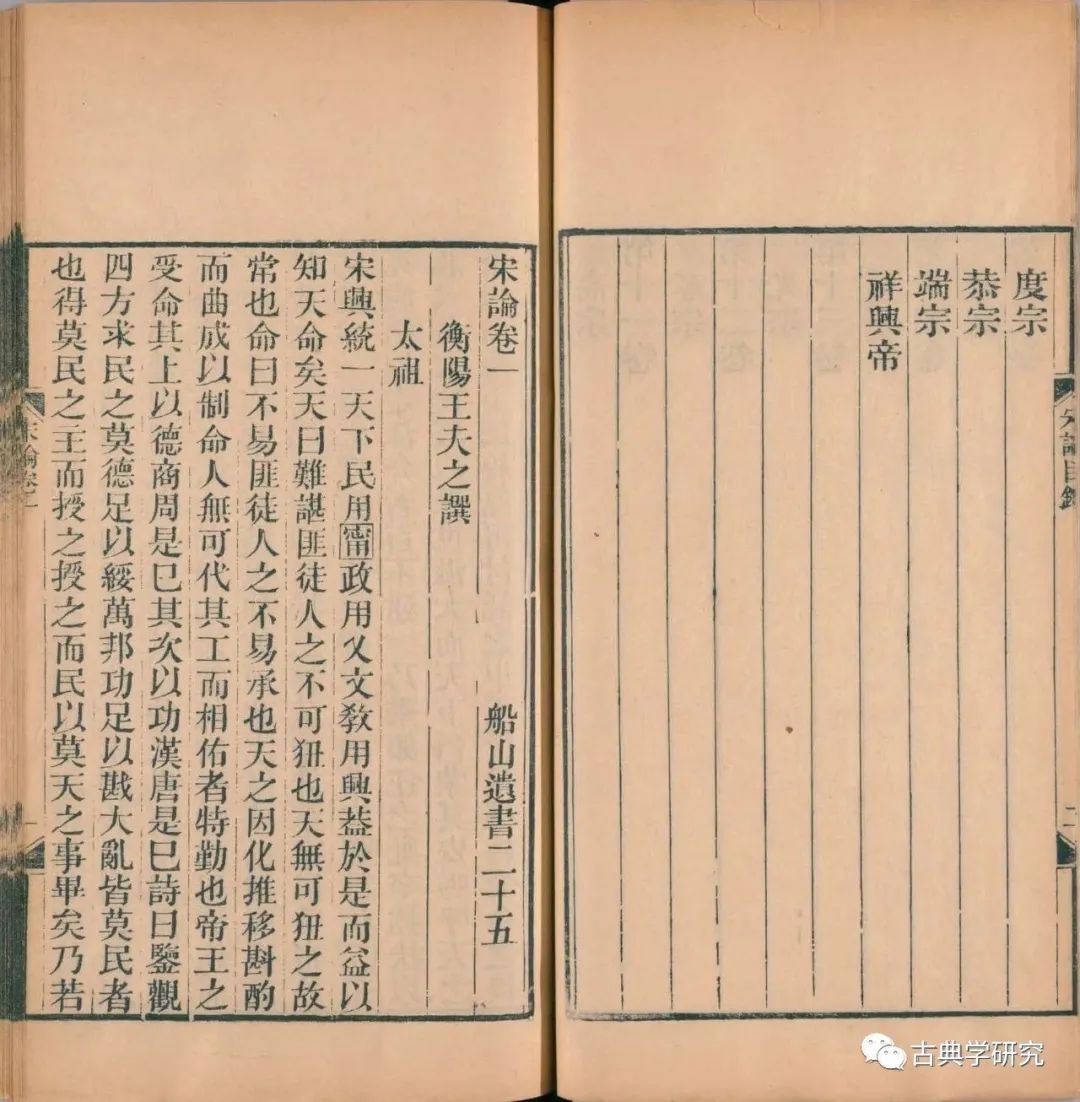 度宗
恭宗
端宗
祥興帝
宋論目錄
二
宋論卷一
船山遺書二十五
衡陽王夫之譔
太祖
宋興統一天下民用甯政用乂文敎用興葢於是而益以
知天命矣天曰難諶匪徒人之不可狃也天無可狃之故
常也命曰不易匪徒人之不易承也天之因化推移斟酌
而曲成以制命人無可代其工而相佑者特勤也帝王之
受命其上以德商周是巳其次以功漢唐是巳詩曰鑒觀
四方求民之莫德足以綏萬邦功足以戡大亂皆莫民者
也得莫民之主而授之授之而民以莫天之事畢矣乃若
宋論卷一
一
古典学研究